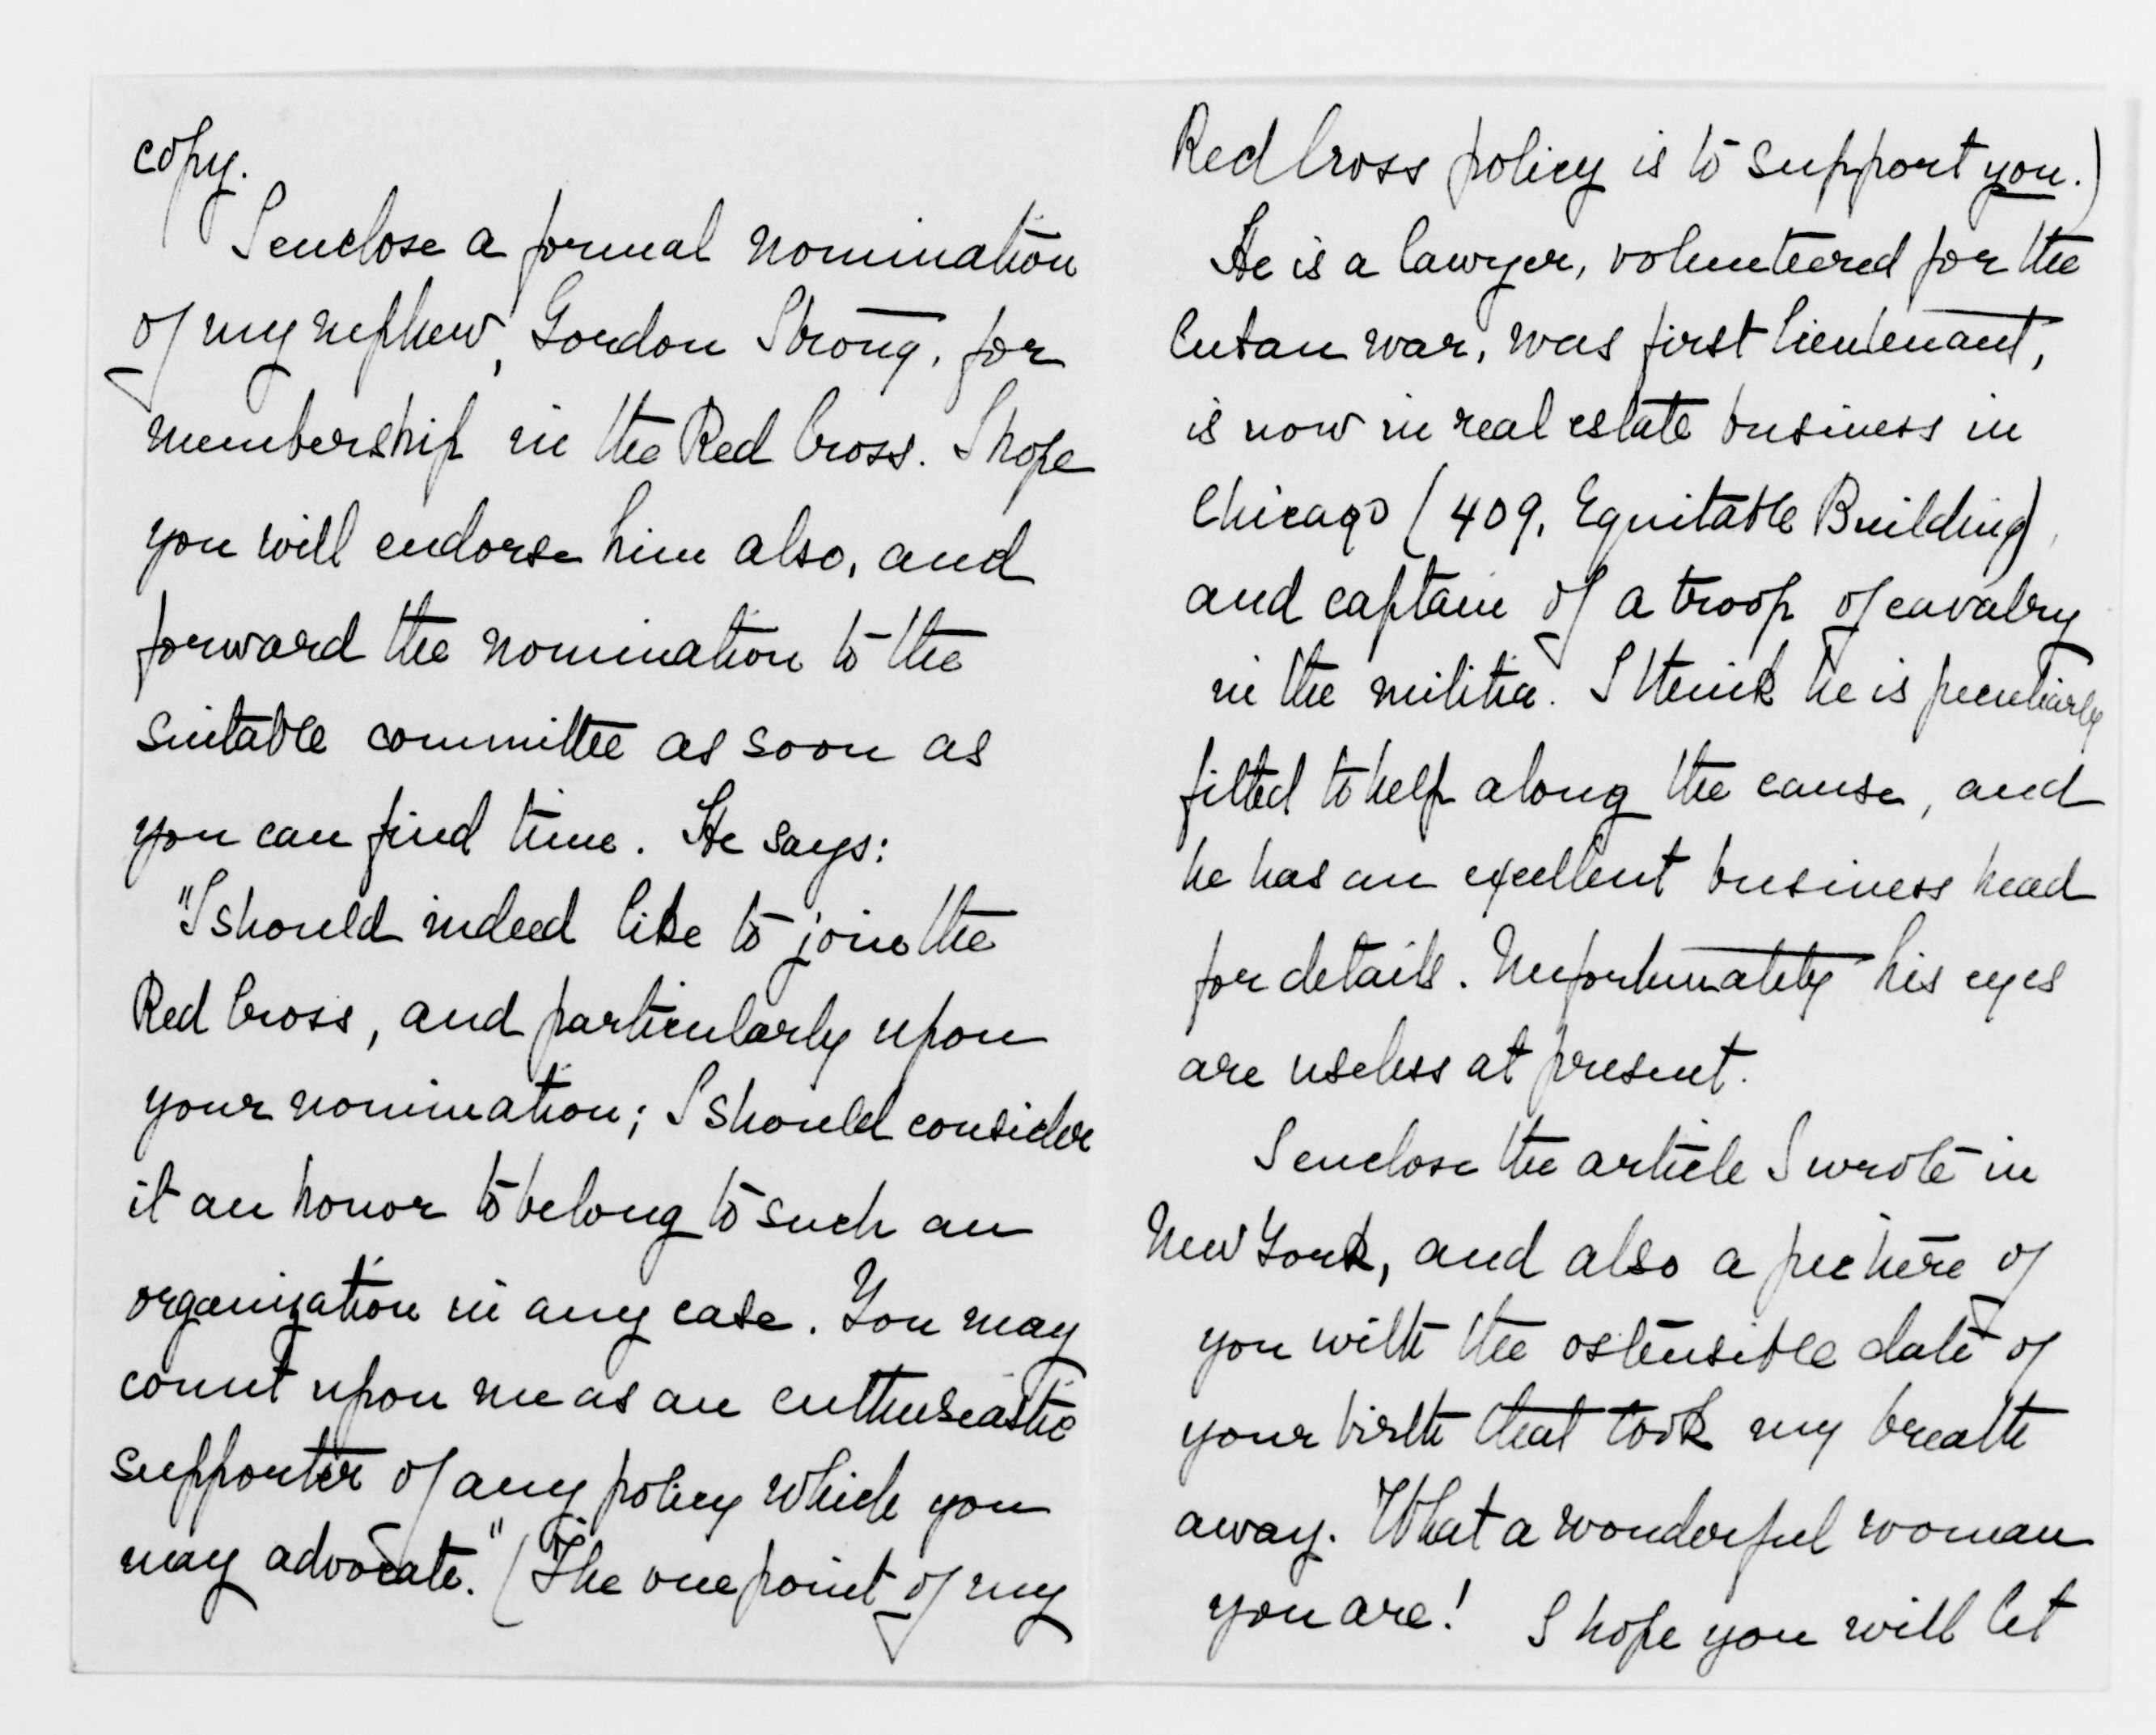 copy.
I enclose a formal nomination
of my nephew, Gordon Strong, for
membership in the Red Cross. I hope
you will endorse him also, and
forward the nomination to the
suitable committee as soon as
you can find time. He says:
"I should indeed like to join the
Red Cross, and particularly upon
your nomination; I should consider
it an honor to belong to such an
organization in any case. You may
count upon me as an enthusiastic
supporter of any policy which you
may advocate." (The one point of my
Red Cross policy is to support you.)
He is a lawyer, volunteered for the
Cuban war, was first lieutenant,
is now in real estate business in
Chicago (409, Equitable Building),
and captain of a troop of cavalry
in the militia. I think he is peculiarly
fitted to help along the cause, and
he has an excellent business head
for details. Unfortunately his eyes
are useless at present.
I enclose the article I wrote in
New York, and also a picture of
you with the ostensible date of
your birth that took my breath
away. What a wonderful woman
you are! I hope you will let